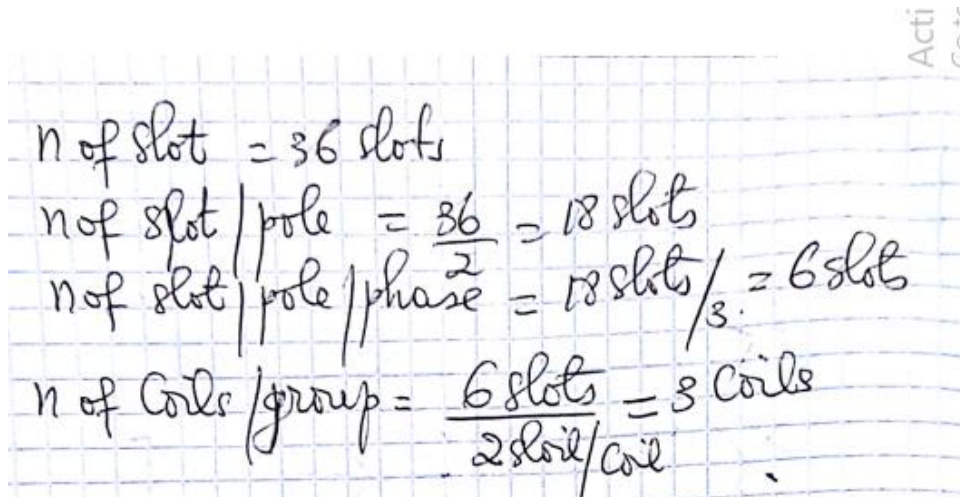 Acti
n of slot = 36 slots
n of slot / pole = 36/2 = 18 slots
n of slot / pole / phase = 18 slots/3. = 6 slots
n of Coils /group = 6 slots/2 sloil/coil = 3 Coils